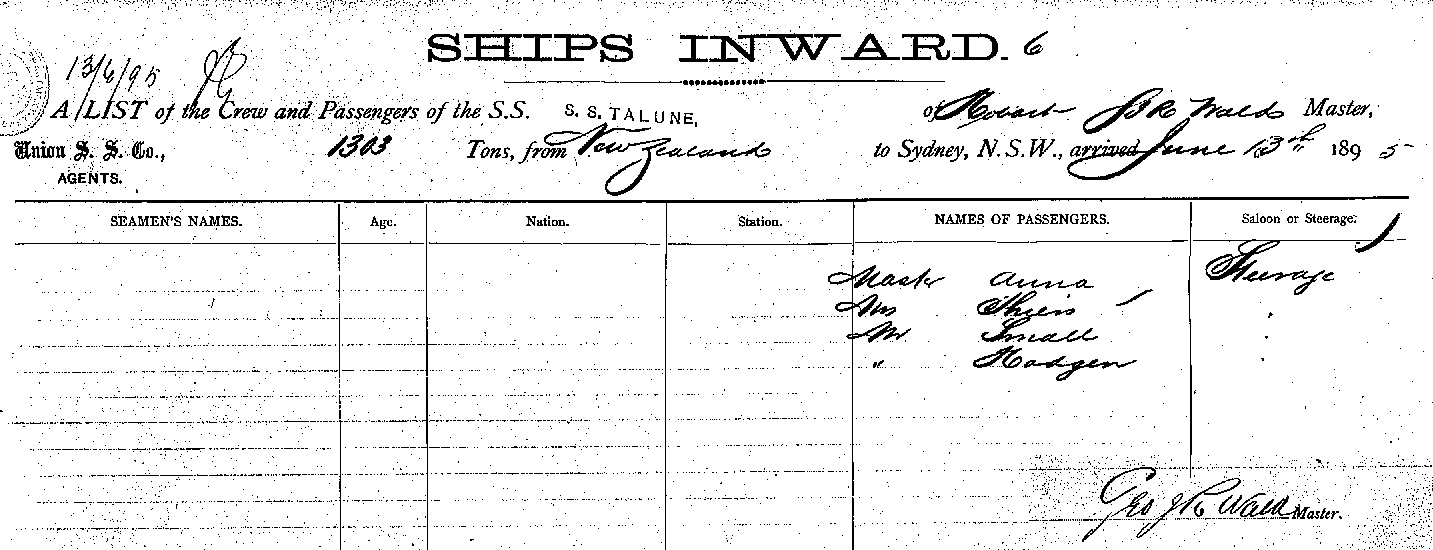 SHIPS INWARD. 6
13/6/95
A LIST of the Crew and Passengers of the S.S. S. S. TALUNE, of Hobart Master,
Union S. S. Co., 1303 Tons, from New Zealand to Sydney, N.S.W., arrived June 13th 1895
AGENTS.
SEAMEN'S NAMES. Age. Nation. Station. NAMES OF PASSENGERS. Saloon or Steerage.
Master Anna Steerage
Mrs
Mr Small
" Hodgen
Geo J R Wald Master.